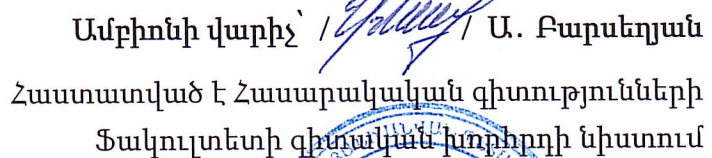 Ամբիոնի վարիչ՝ / / Ա. Բարսեղյան
Հաստատված է Հասարակական գիտությունների
Ֆակուլտետի գիտական խորհրդի նիստում